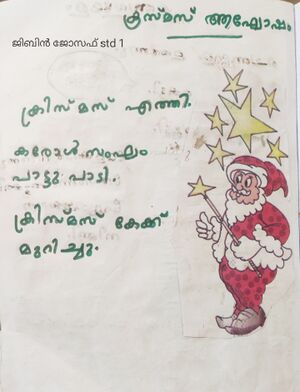 ക്രിസ്മസ് ആഘോഷം
ജിബിൻ ജോസഫ് std 1
ക്രിസ്മസ് എത്തി.
കരോൾ സംഘം
പാട്ടു പാടി.
ക്രിസ്മസ് കേക്ക്
മുറിച്ചു.